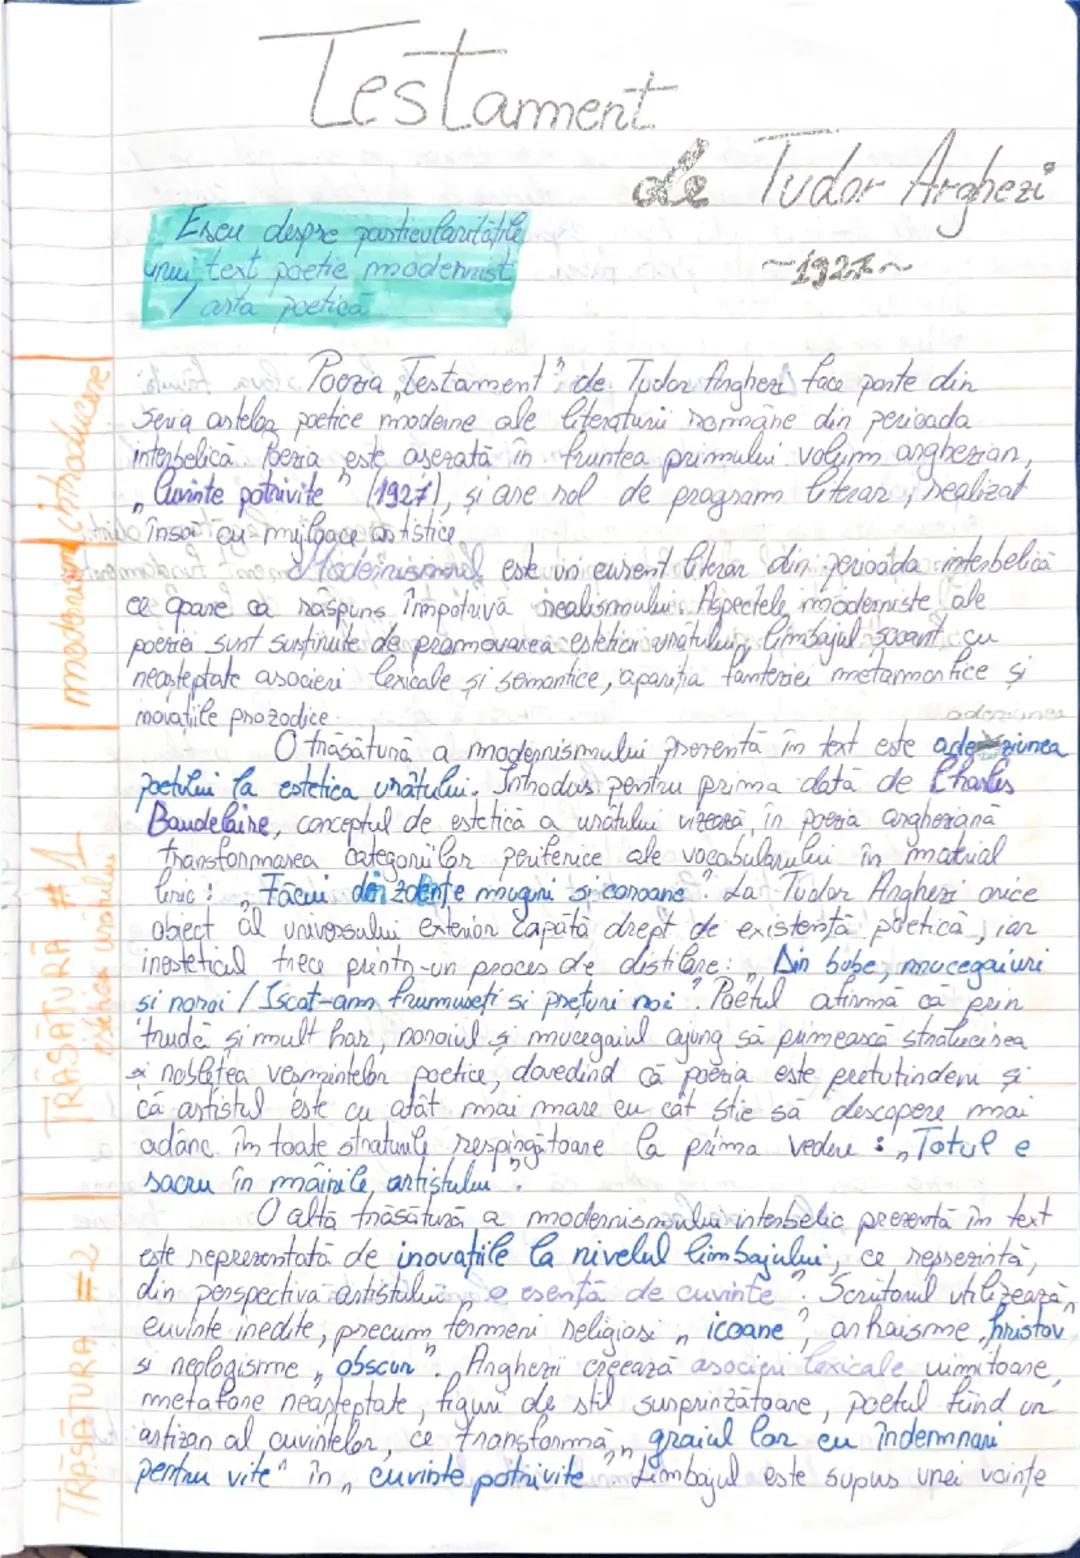 Testament
de Tudor Arghezi
~1927~
Eseu despre particularitățile
unui text poetic modernist
/ arta poetică
modernism / introducere
Poezia „Testament" de Tudor Arghezi face parte din
seria artelor poetice moderne ale literaturii române din perioada
interbelică. Poezia este așezată în fruntea primului volum arghezian,
„Cuvinte potrivite" (1927), și are rol de program literar, realizat
însă cu mijloace artistice
Modernismul este un curent literar din perioada interbelică
ce apare ca răspuns împotriva realismului. Aspectele moderniste ale
poeziei sunt susținute de promovarea esteticii urâtului, limbajul șocant, cu
neașteptate asocieri lexicale și semantice, apariția fanteziei metamorfice și
inovațiile prozodice.
adeziunea
O trăsătură a modernismului prezentă în text este adeziunea
poetului la estetica urâtului. Introdus pentru prima dată de Charles
Baudelaire, conceptul de estetică a urâtului vizează, în poezia argheziană
transformarea categoriilor periferice ale vocabularului în material
liric: „Făcui din zdrențe muguri și coroane". La Tudor Arghezi orice
obiect al universului exterior capătă drept de existență poetică, iar
inesteticul trece printr-un proces de distilare: „Din bube, mucegaiuri
si noroi / Iscat-am frumuseți si prețuri noi". Poetul afirmă că prin
trudă și mult har, noroiul și mucegaiul ajung să primească strălucirea
și noblețea vesmintelor poetice, dovedind că poezia este pretutindeni și
că artistul este cu atât mai mare cu cât știe să descopere mai
adânc în toate straturile respingătoare la prima vedere: „Totul e
sacru în mâinile artistului".
TRĂSĂTURĂ #1
estetica urâtului
O altă trăsătură a modernismului interbelic prezentă în text
este reprezentată de inovațiile la nivelul limbajului, ce reprezintă,
din perspectiva artistului „o esență de cuvinte". Scriitorul utilizează
cuvinte inedite, precum termeni religiosi „icoane", arhaisme „hristov
si neologisme „obscur". Arghezi creează asocieri lexicale uimitoare,
metafore neașteptate, figuri de stil surprinzătoare, poetul fiind un
artizan al cuvintelor, ce transformă „graiul lor cu îndemnuri
pentru vite" în „cuvinte potrivite". Limbajul este supus unei voințe
TRĂSĂTURA #2